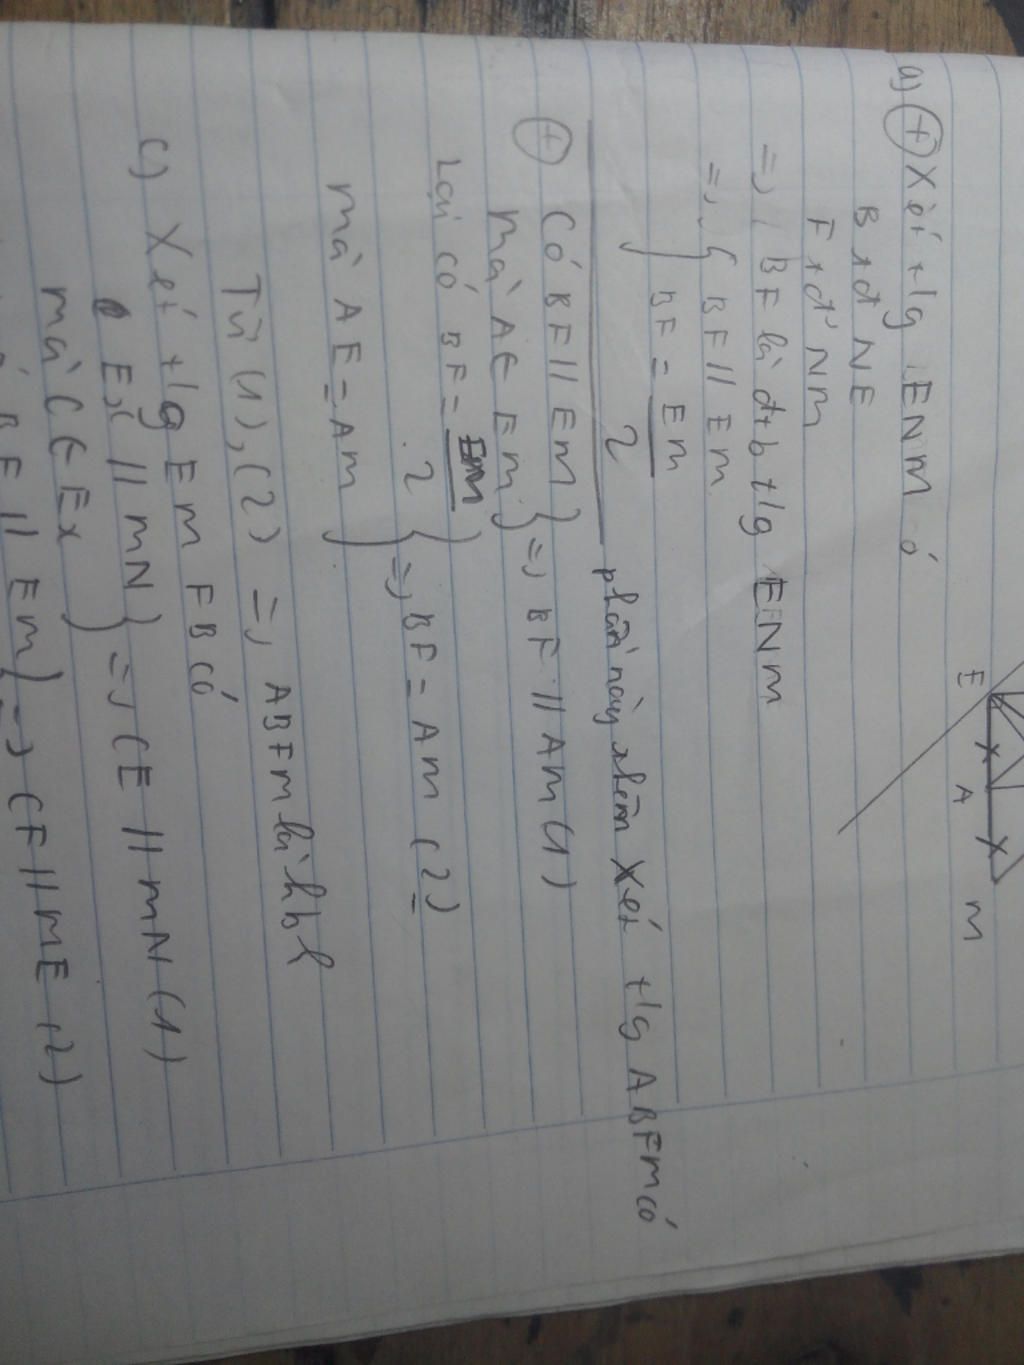 E A M
a) + Xét tlg ENM có
B tđ NE
F tđ NM
=> BF là đtb tlg ENM
=> { BF // EM
BF = EM
2
phần này thêm Xét tlg ABFM có
+ Có BF // EM
mà A ∈ EM } => BF // AM (1)
Lại có BF = EM
2 } => BF = AM (2)
mà AE = AM
Từ (1), (2) => ABFM là hbh
c) Xét tlg EMFB có
Ex // MN } => CE // MN (1)
mà C ∈ Ex
BF // EM } => CF // ME (2)